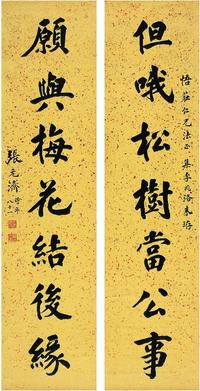 但哦松樹當公事
悟莊仁兄法正
願與梅花結後緣
張元濟
時年八十一